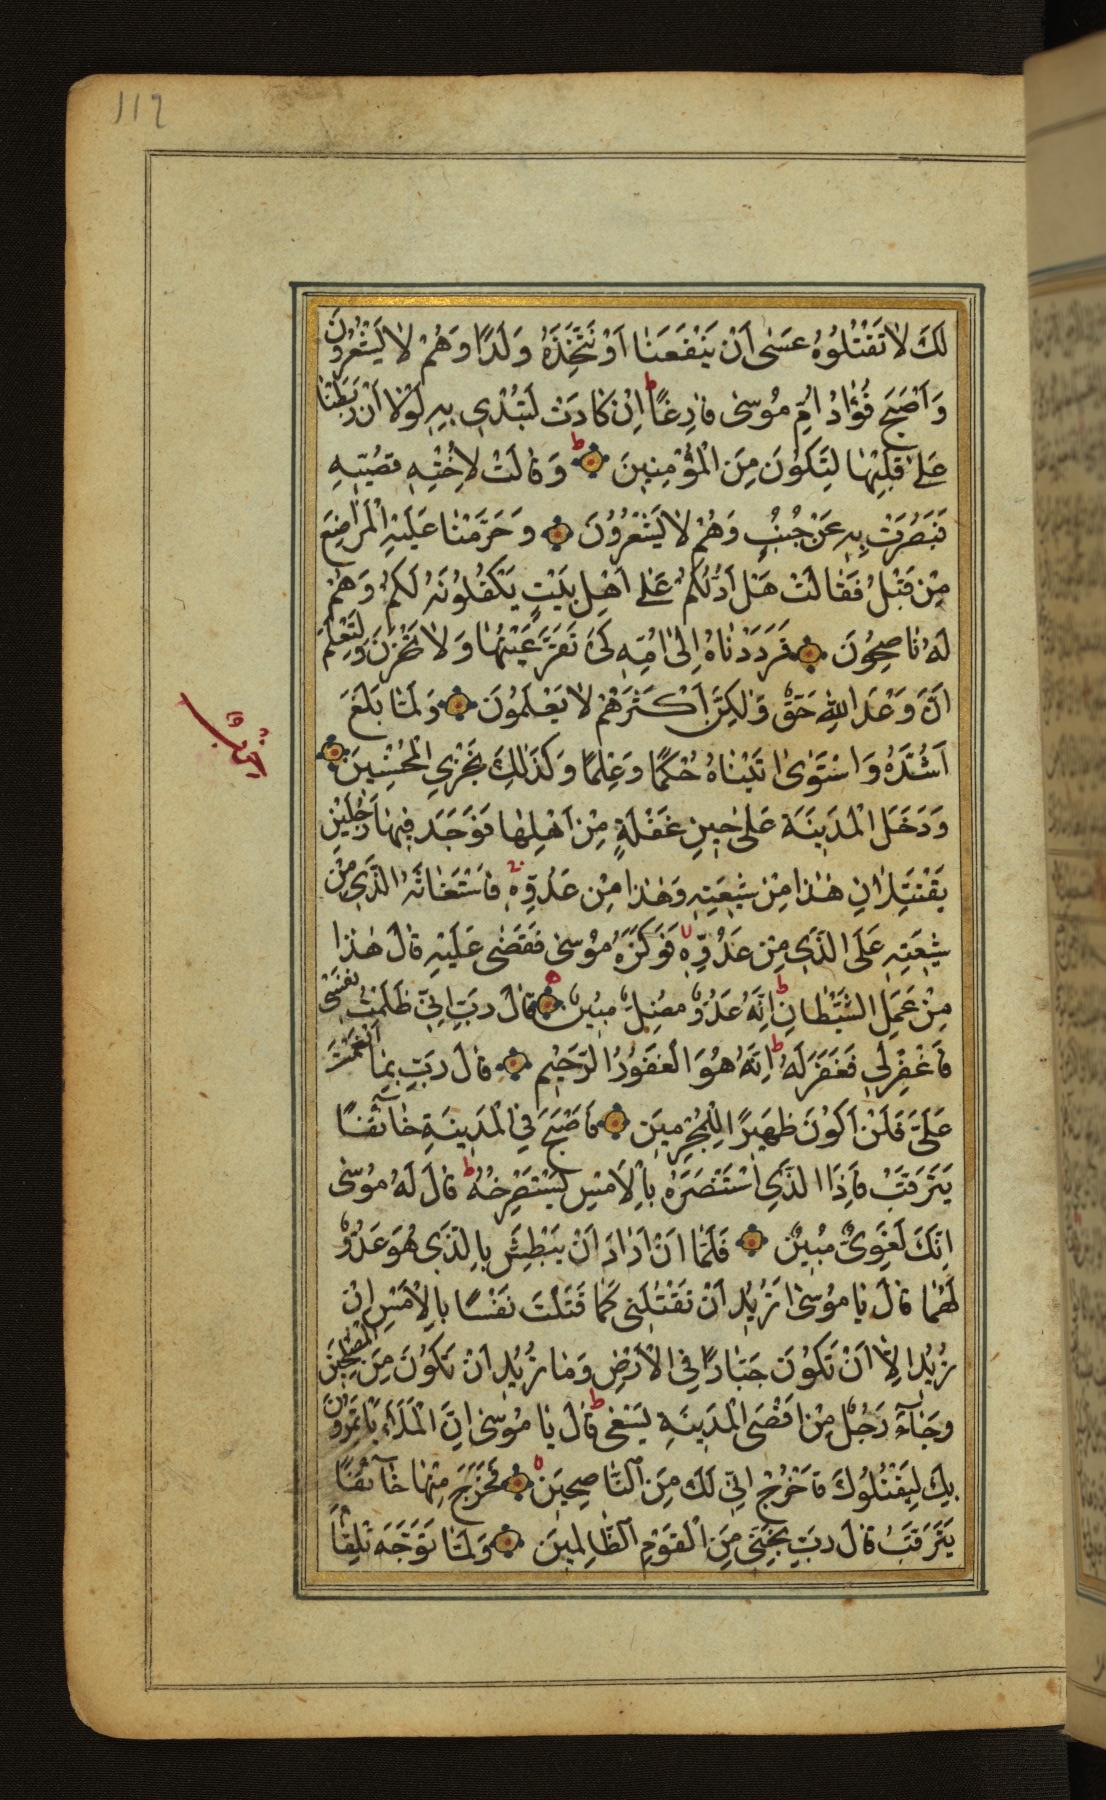 117
لَكَ لَا تَقْتُلُوهُ عَسٰى اَنْ يَنْفَعَنَا اَوْ نَتَّخِذَهُ وَلَدًا وَهُمْ لَا يَشْعُرُونَ
وَاَصْبَحَ فُؤَادُ اُمِّ مُوسٰى فَارِغًا ط اِنْ كَادَتْ لَتُبْدِي بِهِ لَوْلَا اَنْ رَبَطْنَا
عَلٰى قَلْبِهَا لِتَكُونَ مِنَ الْمُؤْمِنِينَ ط وَقَالَتْ لِاُخْتِهِ قُصِّيهِ
فَبَصُرَتْ بِهِ عَنْ جُنُبٍ وَهُمْ لَا يَشْعُرُونَ وَحَرَّمْنَا عَلَيْهِ الْمَرَاضِعَ
مِنْ قَبْلُ فَقَالَتْ هَلْ اَدُلُّكُمْ عَلٰى اَهْلِ بَيْتٍ يَكْفُلُونَهُ لَكُمْ وَهُمْ
لَهُ نَاصِحُونَ فَرَدَدْنَاهُ اِلٰى اُمِّهِ كَيْ تَقَرَّ عَيْنُهَا وَلَا تَحْزَنَ وَلِتَعْلَمَ
اَنَّ وَعْدَ اللّٰهِ حَقٌّ وَلٰكِنَّ اَكْثَرَهُمْ لَا يَعْلَمُونَ وَلَمَّا بَلَغَ
اَشُدَّهُ وَاسْتَوٰى اٰتَيْنَاهُ حُكْمًا وَعِلْمًا وَكَذٰلِكَ نَجْزِي الْمُحْسِنِينَ
وَدَخَلَ الْمَدِينَةَ عَلٰى حِينِ غَفْلَةٍ مِنْ اَهْلِهَا فَوَجَدَ فِيهَا رَجُلَيْنِ
يَقْتَتِلَانِ هٰذَا مِنْ شِيعَتِهِ وَهٰذَا مِنْ عَدُوِّهِ فَاسْتَغَاثَهُ الَّذِي مِنْ
شِيعَتِهِ عَلَى الَّذِي مِنْ عَدُوِّهِ فَوَكَزَهُ مُوسٰى فَقَضٰى عَلَيْهِ قَالَ هٰذَا
مِنْ عَمَلِ الشَّيْطَانِ ط اِنَّهُ عَدُوٌّ مُضِلٌّ مُبِينٌ قَالَ رَبِّ اِنِّي ظَلَمْتُ نَفْسِي
فَاغْفِرْ لِي فَغَفَرَ لَهُ ط اِنَّهُ هُوَ الْغَفُورُ الرَّحِيمُ قَالَ رَبِّ بِمَا اَنْعَمْتَ
عَلَيَّ فَلَنْ اَكُونَ ظَهِيرًا لِلْمُجْرِمِينَ فَاَصْبَحَ فِي الْمَدِينَةِ خَائِفًا
يَتَرَقَّبُ فَاِذَا الَّذِي اسْتَنْصَرَهُ بِالْاَمْسِ يَسْتَصْرِخُهُ ط قَالَ لَهُ مُوسٰى
اِنَّكَ لَغَوِيٌّ مُبِينٌ فَلَمَّا اَنْ اَرَادَ اَنْ يَبْطِشَ بِالَّذِي هُوَ عَدُوٌّ
لَهُمَا قَالَ يَا مُوسٰى اَتُرِيدُ اَنْ تَقْتُلَنِي كَمَا قَتَلْتَ نَفْسًا بِالْاَمْسِ اِنْ
تُرِيدُ اِلَّا اَنْ تَكُونَ جَبَّارًا فِي الْاَرْضِ وَمَا تُرِيدُ اَنْ تَكُونَ مِنَ الْمُصْلِحِينَ
وَجَاءَ رَجُلٌ مِنْ اَقْصَى الْمَدِينَةِ يَسْعٰى ط قَالَ يَا مُوسٰى اِنَّ الْمَلَاَ يَأْتَمِرُونَ
بِكَ لِيَقْتُلُوكَ فَاخْرُجْ اِنِّي لَكَ مِنَ النَّاصِحِينَ فَخَرَجَ مِنْهَا خَائِفًا
يَتَرَقَّبُ قَالَ رَبِّ نَجِّنِي مِنَ الْقَوْمِ الظَّالِمِينَ وَلَمَّا تَوَجَّهَ تِلْقَاءَ